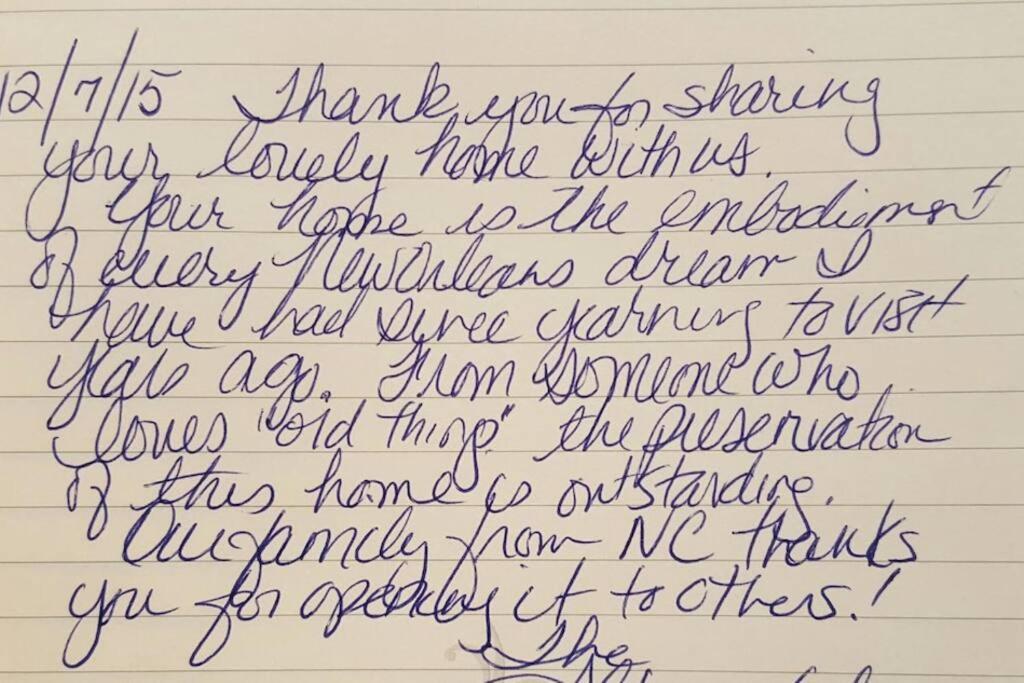 12/7/15 Thank you for sharing
your lovely home with us.
Your home is the embodiment
of every New Orleans dream I
have had since yearning to visit
years ago. From someone who
loves "old things" the preservation
of this home is outstanding.
Our family from NC thanks
you for opening it to others!
The